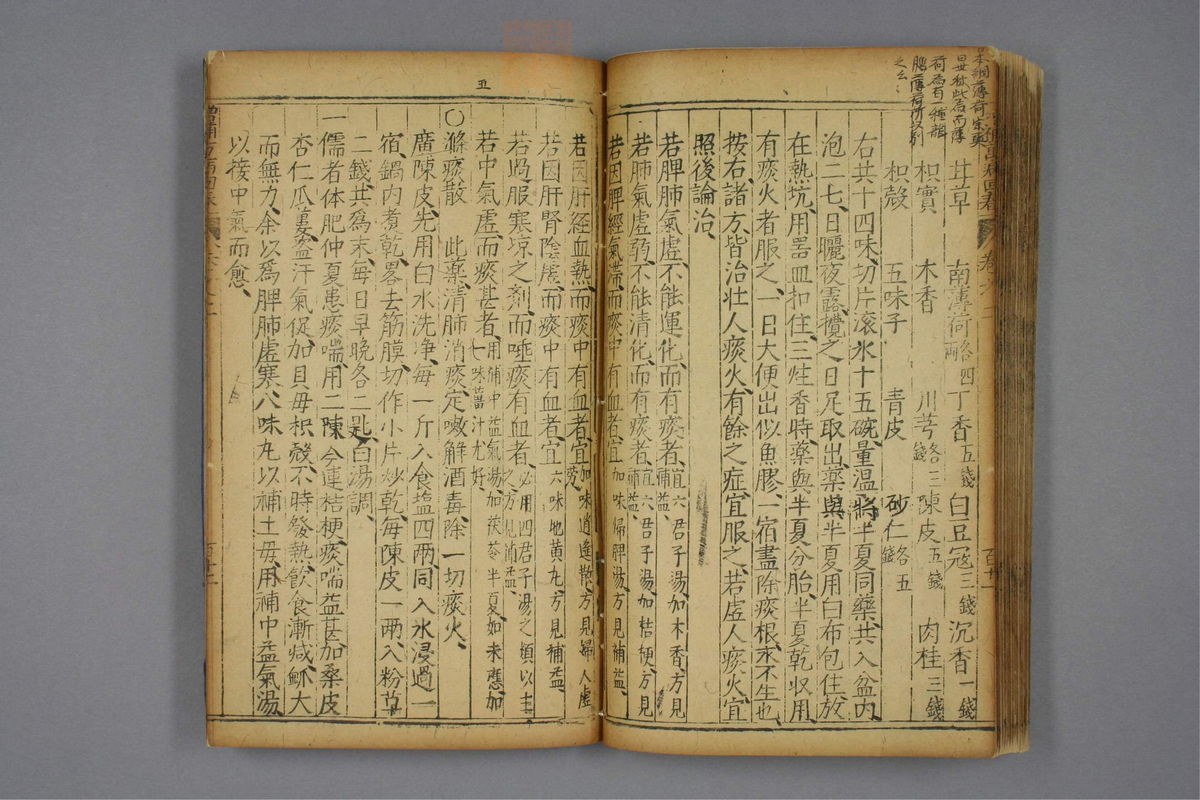 甘草　南薄荷各四兩　丁香五錢　白豆冠三錢　沉香一錢
枳實　木香　川芎各三錢　陳皮五錢　肉桂三錢
枳殼　五味子　青皮　砂仁各五錢
右共十四味、切片滾水十五碗、量溫、將半夏同藥、共入盆內
泡二七日、曬夜露、攪之、日足取出、藥與半夏用白布包住、放
在熱坑、用器皿扣住、三炷香時、藥與半夏分胎、半夏乾、收用
有痰火者服之、一日大便出似魚膠、一宿盡除痰根、永不生也、
按右、諸方、皆治壯人痰火、有餘之症、宜服之、若虛人痰火、宜
照後論治、
若脾肺氣虛、不能運化、而有痰者、宜六君子湯、加木香、方見補益、
若肺氣虛弱、不能清化、而有痰者、宜六君子湯、加桔梗、方見補益、
若因脾經氣滯、而痰中有血者、宜加味歸脾湯、方見補益、
若因肝經血熱、而痰中有血者、宜加味逍遙散、方見婦人虛勞、
若因肝腎陰虛、而痰中有血者、宜六味地黃丸、方見補益、
若過服寒凉之劑、而唾痰有血者、必用四君子湯之類、以主之、方見補益、
若中氣虛、而痰甚者、用補中益氣湯、加茯苓半夏、如未應、加一味薑汁尤好
○滌痰散　此藥清肺消痰、定嗽解酒毒、除一切痰火、
廣陳皮、先用白水洗淨、每一斤入食塩四兩、同入水浸過一
宿、鍋內煮乾、畧去筋膜、切作小片炒乾、每陳皮一兩、入粉草
二錢、共為末、每日早晚各二匙、白湯調、
一儒者、体肥、仲夏患痰喘、用二陳芩連桔梗、痰喘益甚、加桑皮
杏仁瓜蔞、盗汗氣促、加貝母枳殼、不時發熱、飲食漸減、穌大
而無力、余以爲脾肺虛寒、八味丸、以補土母、用補中益氣湯、
以接中氣而愈、